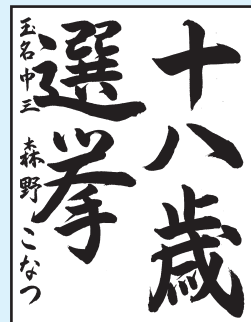 十八歳
選挙
玉名中三 森野こなつ